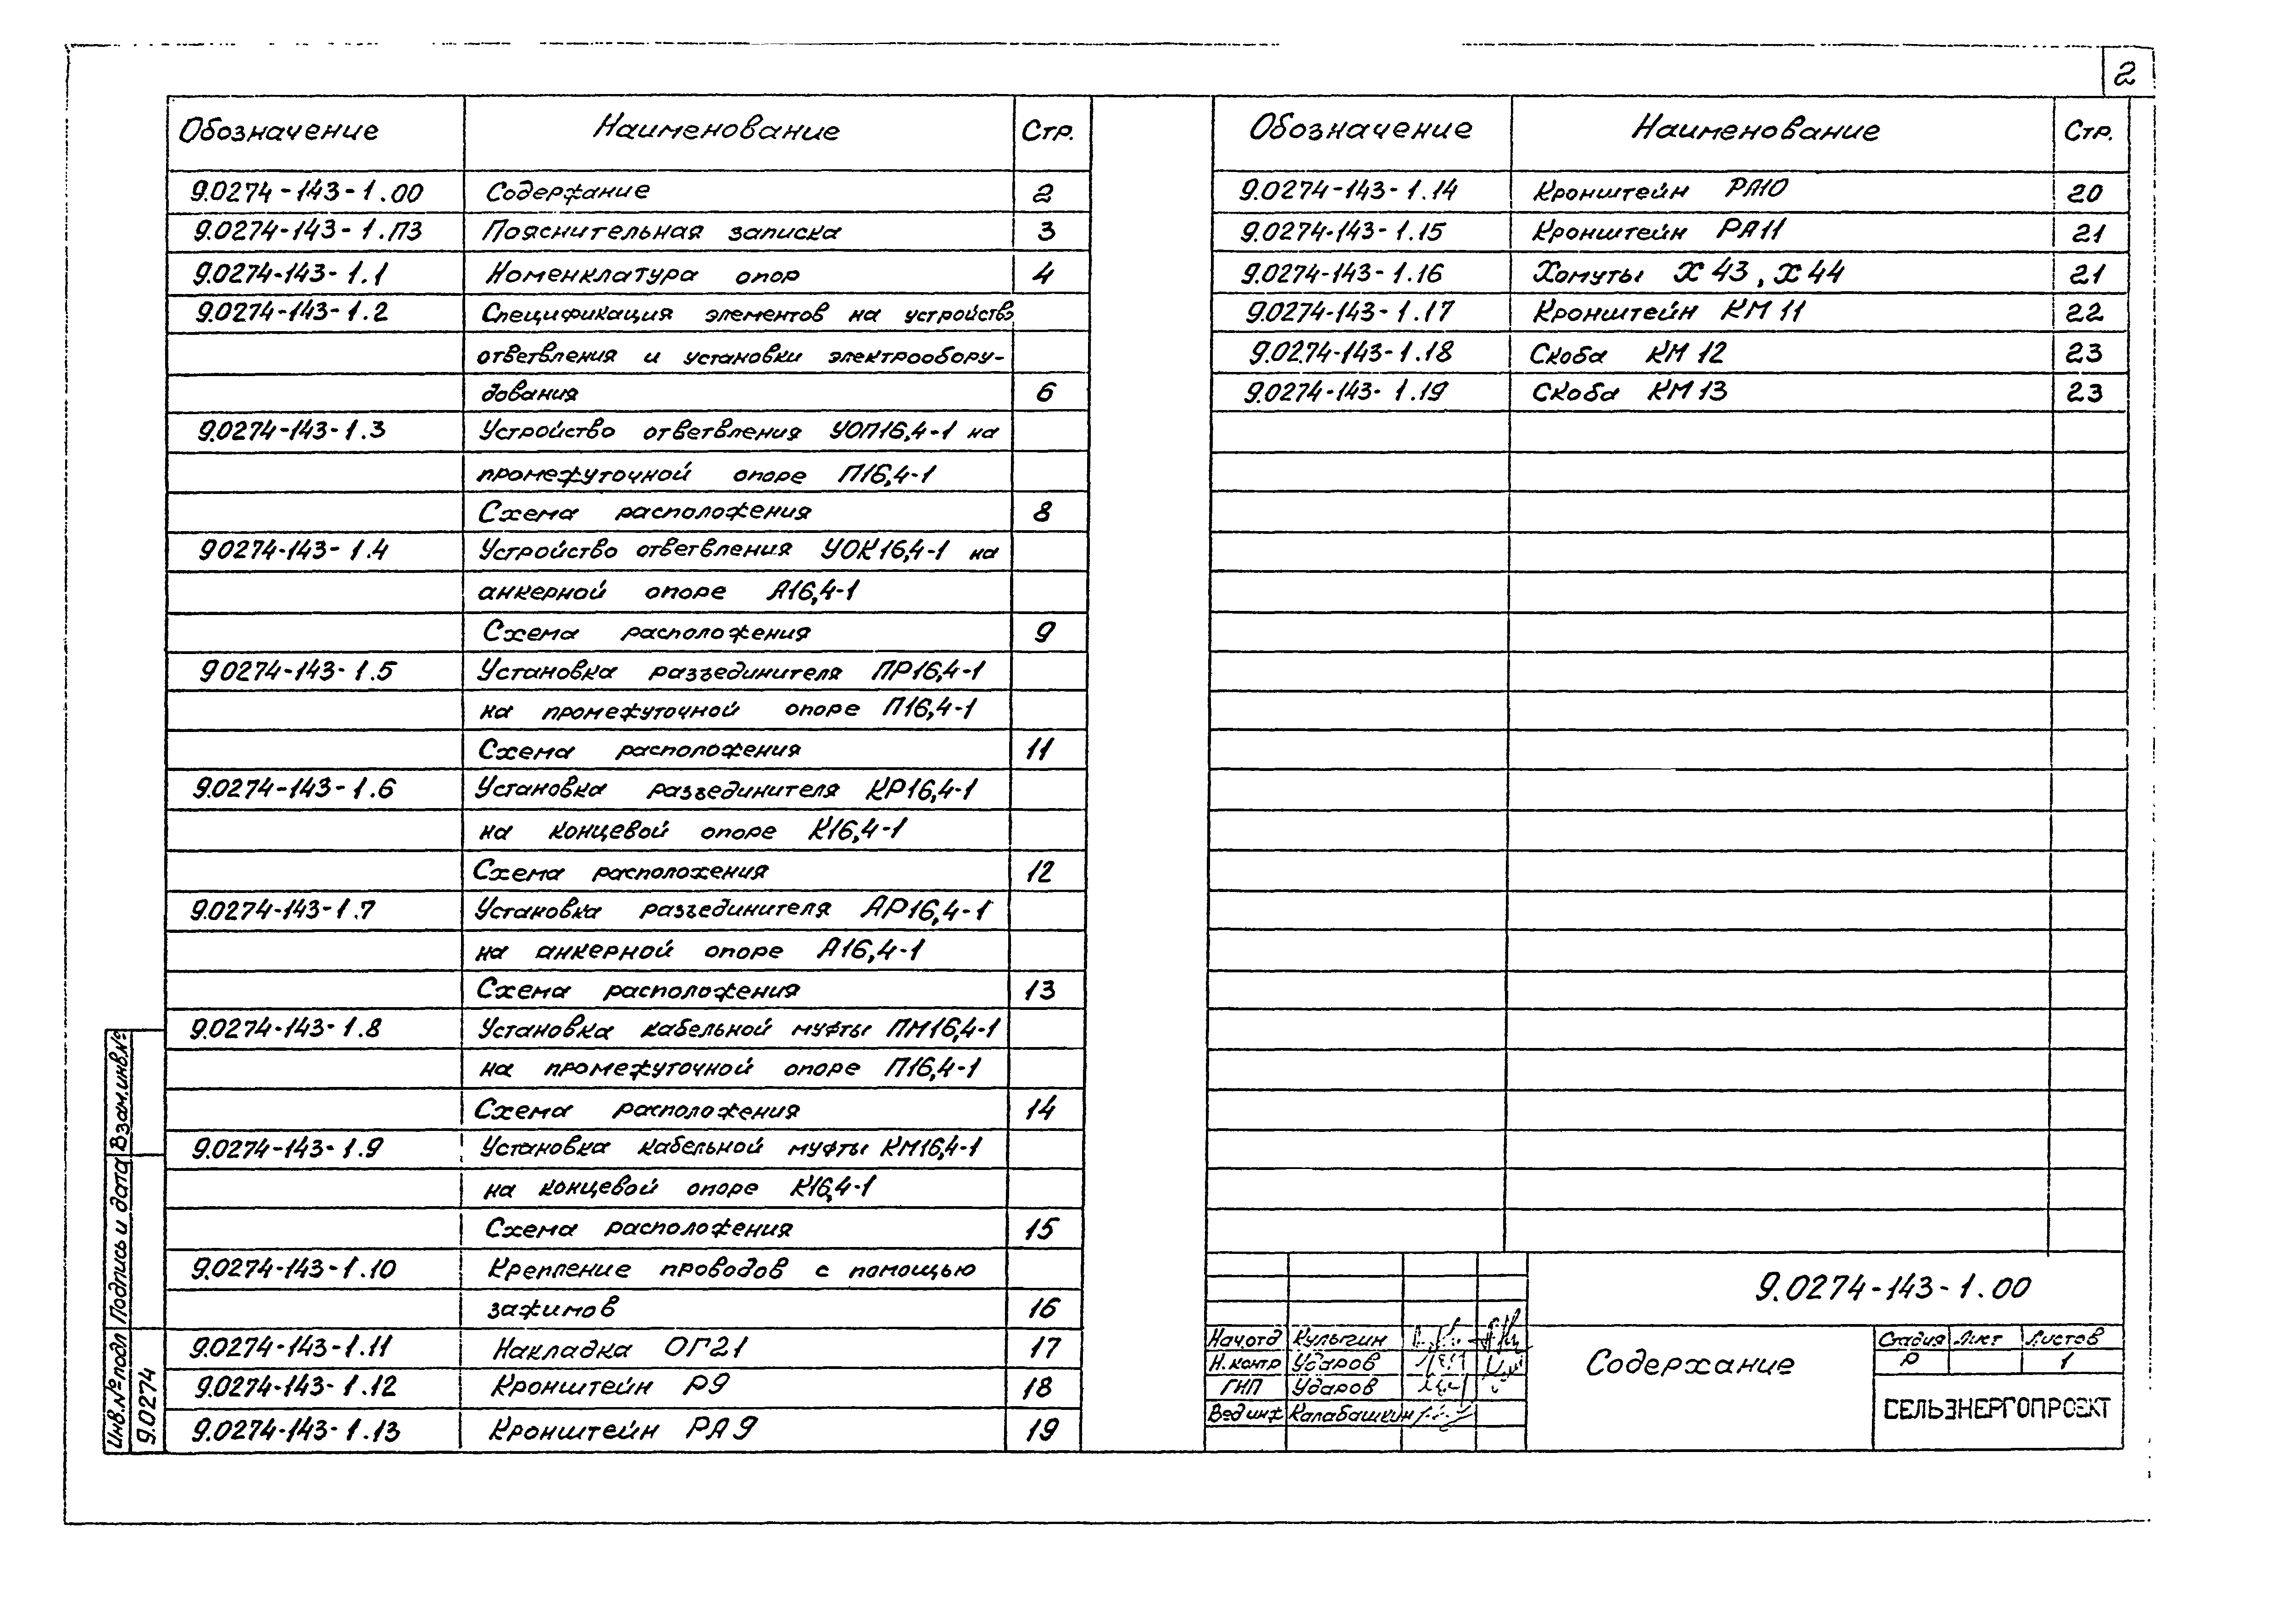 2
Обозначение Наименование Стр.
9.0274-143-1.00 Содержание 2
9.0274-143-1.ПЗ Пояснительная записка 3
9.0274-143-1.1 Номенклатура опор 4
9.0274-143-1.2 Спецификация элементов на устройство
ответвления и установки электрообору-
дования 6
9.0274-143-1.3 Устройство ответвления УОП16,4-1 на
промежуточной опоре П16,4-1
Схема расположения 8
90274-143-1.4 Устройство ответвления УОК16,4-1 на
анкерной опоре А16,4-1
Схема расположения 9
90274-143-1.5 Установка разъединителя ПР16,4-1
на промежуточной опоре П16,4-1
Схема расположения 11
9.0274-143-1.6 Установка разъединителя КР16,4-1
на концевой опоре К16,4-1
Схема расположения 12
9.0274-143-1.7 Установка разъединителя АР16,4-1
на анкерной опоре А16,4-1
Схема расположения 13
9.0274-143-1.8 Установка кабельной муфты ПМ16,4-1
на промежуточной опоре П16,4-1
Схема расположения 14
9.0274-143-1.9 Установка кабельной муфты КМ16,4-1
на концевой опоре К16,4-1
Схема расположения 15
9.0274-143-1.10 Крепление проводов с помощью
зажимов 16
9.0274-143-1.11 Накладка ОГ21 17
9.0274-143-1.12 Кронштейн Р9 18
9.0274-143-1.13 Кронштейн РА9 19
Обозначение Наименование Стр.
9.0274-143-1.14 Кронштейн РА10 20
9.0274-143-1.15 Кронштейн РА11 21
9.0274-143-1.16 Хомуты Х43, Х44 21
9.0274-143-1.17 Кронштейн КМ11 22
9.0274-143-1.18 Скоба КМ12 23
9.0274-143-1.19 Скоба КМ13 23
9.0274-143-1.00
Нач.отд Кулыгин
Н.контр Ударов
ГИП Ударов
Вед инж Калабашкин
Содержание
Стадия Лист Листов
Р 1
СЕЛЬЭНЕРГОПРОЕКТ
Инв.№подл Подпись и дата Взам.инв.№
9.0274